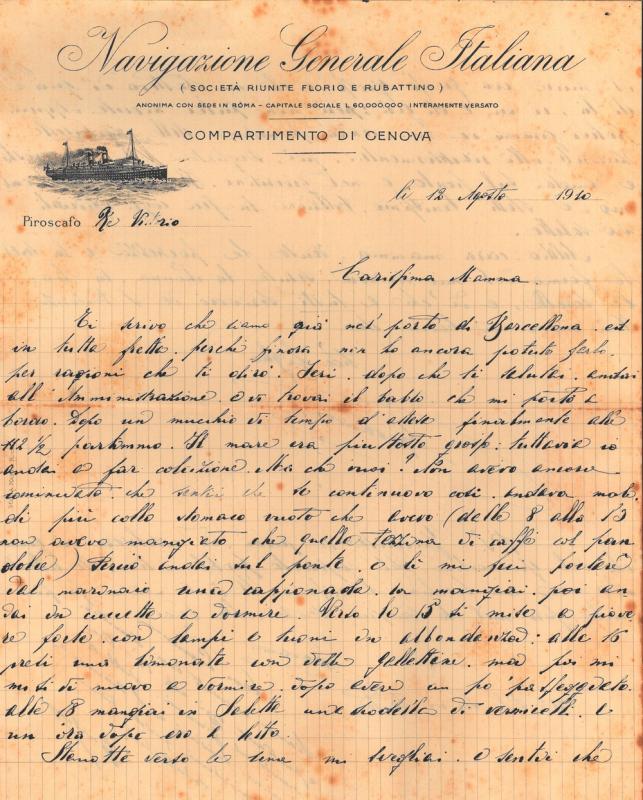 Navigazione Generale Italiana
(SOCIETÀ RIUNITE FLORIO E RUBATTINO)
ANONIMA CON SEDE IN ROMA - CAPITALE SOCIALE L. 60.000.000 INTERAMENTE VERSATO
COMPARTIMENTO DI GENOVA
lì 12 Agosto 1910
Piroscafo Re Vitt.rio
Carissima Mamma.
Ti scrivo che siamo già nel porto di Barcellona. ed
in tutta fretta. perchè finora non ho ancora potuto farlo.
per ragioni che ti dirò. Ieri. dopo che ti salutai. andai
all'Amministrazione. ove trovai il babbo che mi portò a
bordo. Dopo un mucchio di tempo d'attesa finalmente alle
12 1/2 partimmo. Il mare era piuttosto grosso: tuttavia io
andai a far colazione. Ma che vuoi? Non avevo ancora
cominciato. che sentii che se continuavo così. andava male.
di più collo stomaco vuoto che avevo (dalle 8 alle 13
non avevo mangiato che quella tazzina di caffè col pan
dolce) Perciò andai sul ponte. e lì mi feci portare
dal marinaio una cappionada. la mangiai. poi an
dai in cuccetta a dormire. Verso le 15 si mise a piove
re forte. con lampi e tuoni in abbondanza: alle 16
presi una limonata con delle gallettine. ma poi mi
misi di nuovo a dormire. dopo avere un po' passeggiato.
alle 18 mangiai in una scodella di vermicelli. e
un'ora dopo ero a letto.
Stanotte verso le una mi svegliai. e sentii che